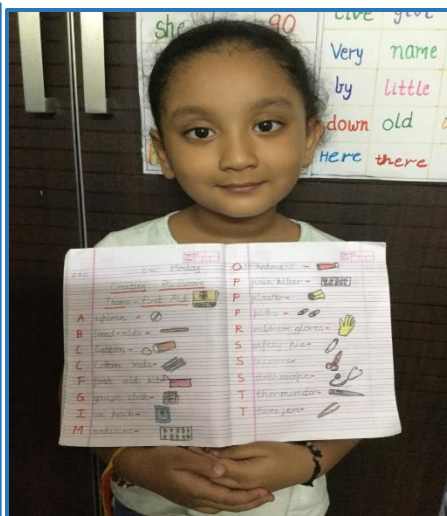 she
90
Very name
by little
down old
Here there
Monday
Creating Dictionary
Theme - First Aid
A spirin -
B band-aids -
C Cotton -
C Cotton buds -
F first aid kit
G gauze cloth -
I ice pack -
M medicine -
O ointment -
P pain killer -
P plaster -
P pills -
R rubber gloves -
S safety pin -
S scissors -
S stethoscope -
T thermometer -
T tweezers -